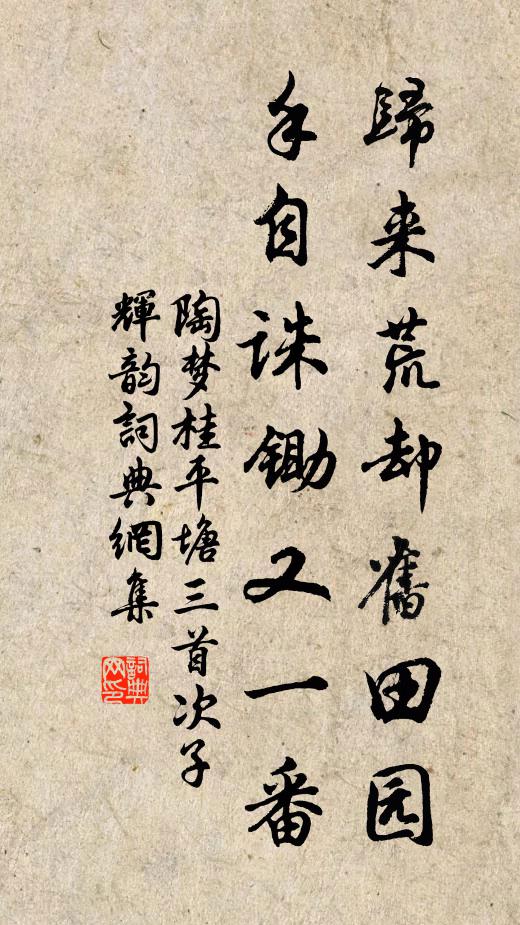 歸来荒却舊田园
手自誅鋤又一番
陶梦桂平塘三首次子
輝韵詞典網集
詞典网印